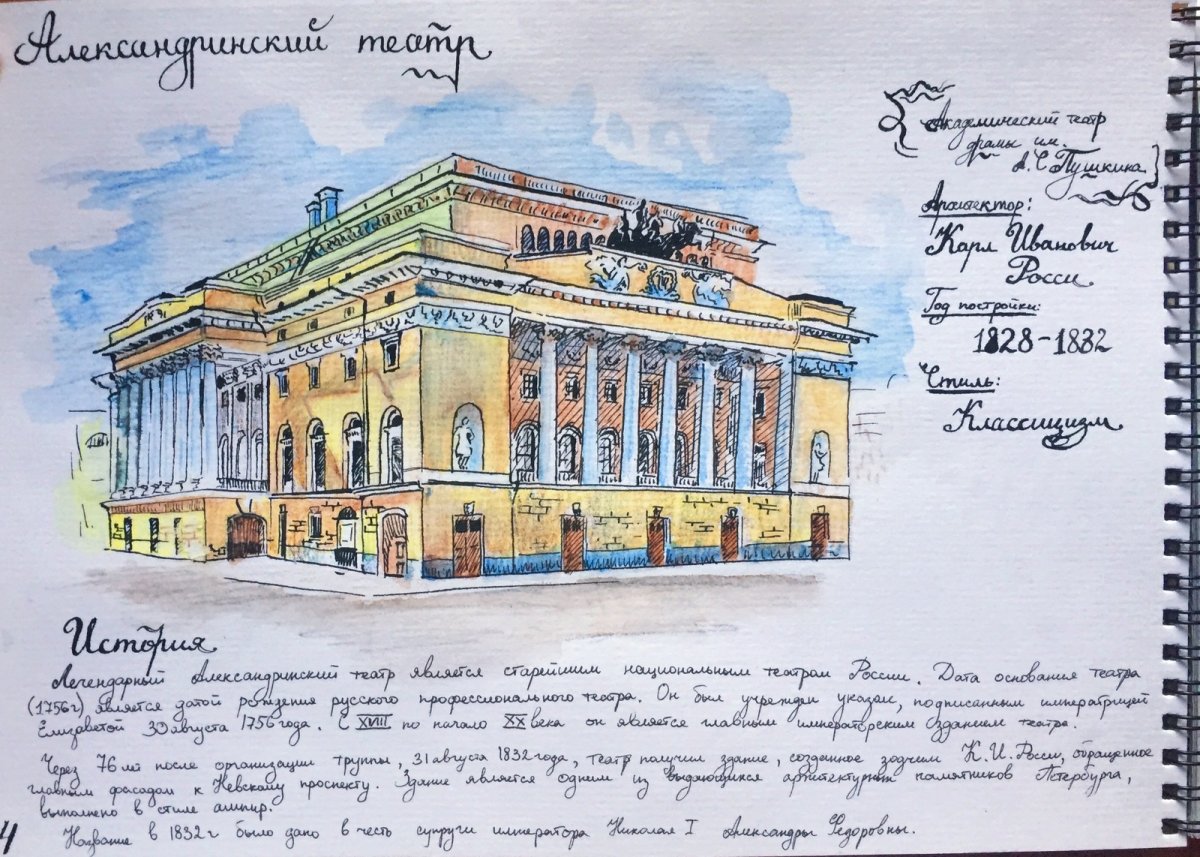 Александринский театр
Академический театр
драмы им.
А.С. Пушкина
Архитектор:
Карл Иванович
Росси
Год постройки:
1828-1832
Стиль:
Классицизм
История
Легендарный Александринский театр является старейшим национальным театром России. Дата основания театра
(1756г) является датой рождения русского профессионального театра. Он был учрежден указом, подписанным императрицей
Елизаветой 30 августа 1756 года. С XVIII по начало XX века он является главным императорским зданием театра.
Через 76 лет после организации труппы, 31 августа 1832 года, театр получил здание, созданное зодчим К.И. Росси, обращенное
главным фасадом к Невскому проспекту. Здание является одним из выдающихся архитектурных памятников Петербурга,
выполнено в стиле ампир.
Название в 1832г было дано в честь супруги императора Николая I Александры Федоровны.
4